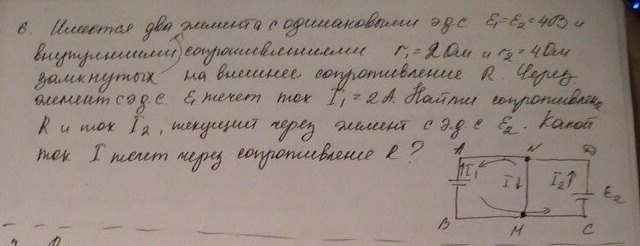 6. Имеются два элемента с одинаковыми э.д.с ε₁=ε₂=4В и
внутренними сопротивлениями r₁=2Ом и r₂=4Ом
замкнутых на внешнее сопротивление R. Через
элемент с э.д.с. ε₁ течет ток I₁=2А. Найти сопротивлен
R и ток I₂, текущий через элемент с э.д.с ε₂. Какой
ток I течет через сопротивление R?
A N D
I₁ I I₂ ε₂
B M C